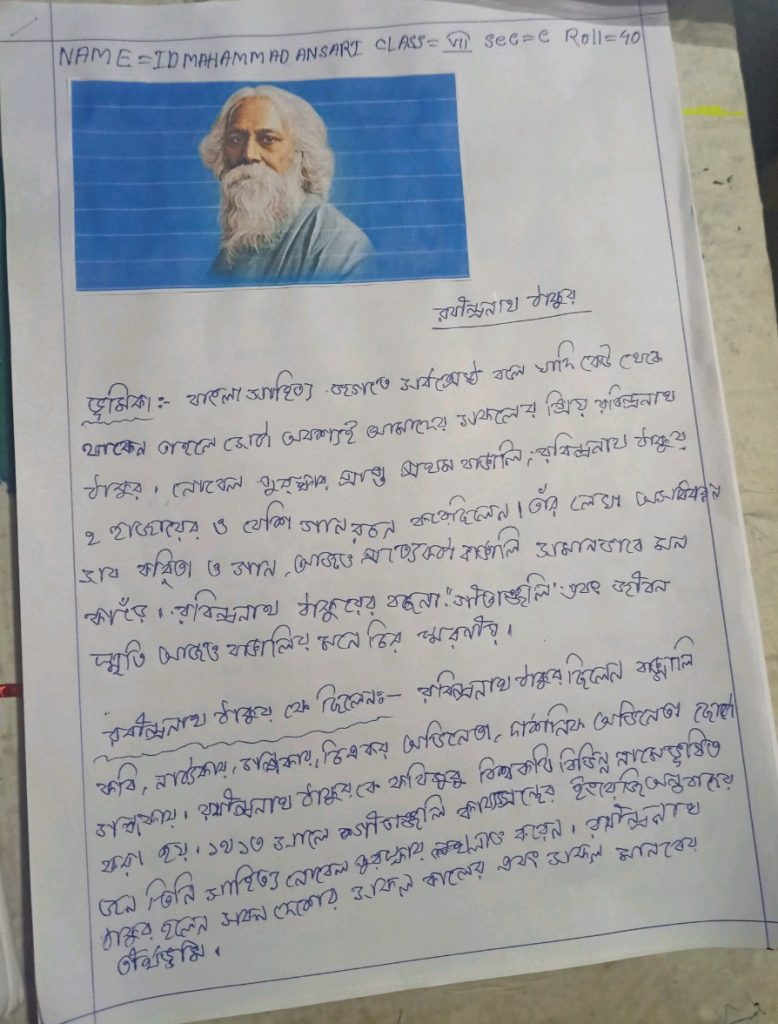 NAME = ID MAHAMMAD ANSARI CLASS = VII SEC = C Roll = 40
রবীন্দ্রনাথ ঠাকুর
ভূমিকা :- বাংলা সাহিত্য জগতে সর্বশ্রেষ্ঠ বলে যদি কেউ থেকে
থাকেন তাহলে সেটা অবশ্যই আমাদের সকলের প্রিয় রবিন্দ্রনাথ
ঠাকুর। নোবেল পুরস্কার প্রাপ্ত প্রথম বাঙালি, রবিন্দ্রনাথ ঠাকুর
২ হাজারের ও বেশি গান রচনা করেছিলেন। তাঁর লেখা
কবিতা ও গান, আজও প্রত্যেকটা বাঙালি সমানভাবে মন
কাড়ে। রবিন্দ্রনাথ ঠাকুরের রচনা "গীতাঞ্জলি" এবং জীবন
স্মৃতি আজও বাঙালির মনে চির স্মরণীয়।
রবীন্দ্রনাথ ঠাকুর কে ছিলেনঃ- রবিন্দ্রনাথ ঠাকুর ছিলেন বাঙ্গালি
কবি, নাট্যকার, গল্পকার, চিত্রকর অভিনেতা, দার্শনিক অভিনেতা ছোটো
গল্পকার। রবীন্দ্রনাথ ঠাকুর কে কবিগুরু বিশ্বকবি বিভিন্ন নামে ভূষিত
করা হয়। ১৯১৩ সালে গীতাঞ্জলি কাব্যগ্রন্থের ইংরেজি অনুবাদের
জন্য তিনি সাহিত্য নোবেল পুরস্কার লাভ করেন। রবীন্দ্রনাথ
ঠাকুর হলেন সকল দেশের সকল কালের এবং সকল মানবের
তীর্থভূমি।